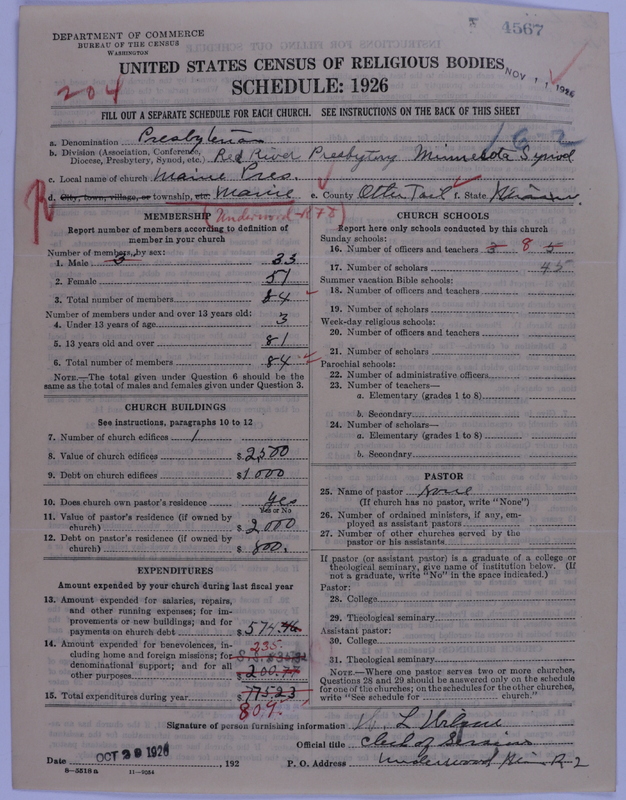 4567
DEPARTMENT OF COMMERCE
BUREAU OF THE CENSUS
WASHINGTON
UNITED STATES CENSUS OF RELIGIOUS BODIES
SCHEDULE: 1926
NOV 11 1926
204
FILL OUT A SEPARATE SCHEDULE FOR EACH CHURCH. SEE INSTRUCTIONS ON THE BACK OF THIS SHEET
a. Denomination Presbyterian
162
b. Division (Association, Conference, Diocese, Presbytery, Synod, etc.) Red River Presbytery Minnesota Synod
c. Local name of church Maine Pres.
d. City, town, village, or township, etc. Maine e. County Otter Tail f. State Minn.
Underwood-R78
MEMBERSHIP
Report number of members according to definition of
member in your church
Number of members, by sex:
1. Male 33
2. Female 51
3. Total number of members 84
Number of members under and over 13 years old:
4. Under 13 years of age 3
5. 13 years old and over 81
6. Total number of members 84
NOTE.—The total given under Question 6 should be the
same as the total of males and females given under Question 3.
CHURCH BUILDINGS
See instructions, paragraphs 10 to 12
7. Number of church edifices 1
8. Value of church edifices $ 2500
9. Debt on church edifices $ 1000
10. Does church own pastor's residence Yes
Yes or No
11. Value of pastor's residence (if owned by
church) $ 2000
12. Debt on pastor's residence (if owned by
church) $ 800.
EXPENDITURES
Amount expended by your church during last fiscal year
13. Amount expended for salaries, repairs,
and other running expenses; for im-
provements or new buildings; and for
payments on church debt $ 574.46
14. Amount expended for benevolences, in-
cluding home and foreign missions; for
denominational support; and for all
other purposes 235. $ 200.77
15. Total expenditures during year $ 775.23
809.
CHURCH SCHOOLS
Report here only schools conducted by this church
Sunday schools:
16. Number of officers and teachers 3 8 5
17. Number of scholars 45
Summer vacation Bible schools:
18. Number of officers and teachers
19. Number of scholars
Week-day religious schools:
20. Number of officers and teachers
21. Number of scholars
Parochial schools:
22. Number of administrative officers
23. Number of teachers—
a. Elementary (grades 1 to 8)
b. Secondary
24. Number of scholars—
a. Elementary (grades 1 to 8)
b. Secondary
PASTOR
25. Name of pastor None
(If church has no pastor, write "None")
26. Number of ordained ministers, if any, em-
ployed as assistant pastors
27. Number of other churches served by the
pastor or his assistants
If pastor (or assistant pastor) is a graduate of a college or
theological seminary, give name of institution below. (If
not a graduate, write "No" in the space indicated.)
Pastor:
28. College
29. Theological seminary
Assistant pastor:
30. College
31. Theological seminary
NOTE.—Where one pastor serves two or more churches,
Questions 28 and 29 should be answered only on the schedule
for one of the churches; on the schedules for the other churches,
write "See schedule for church."
Signature of person furnishing information L
Official title Clerk of Session
Date OCT 29 1926, 192 P. O. Address Underwood Minn R-2
8-5518a 11-9054